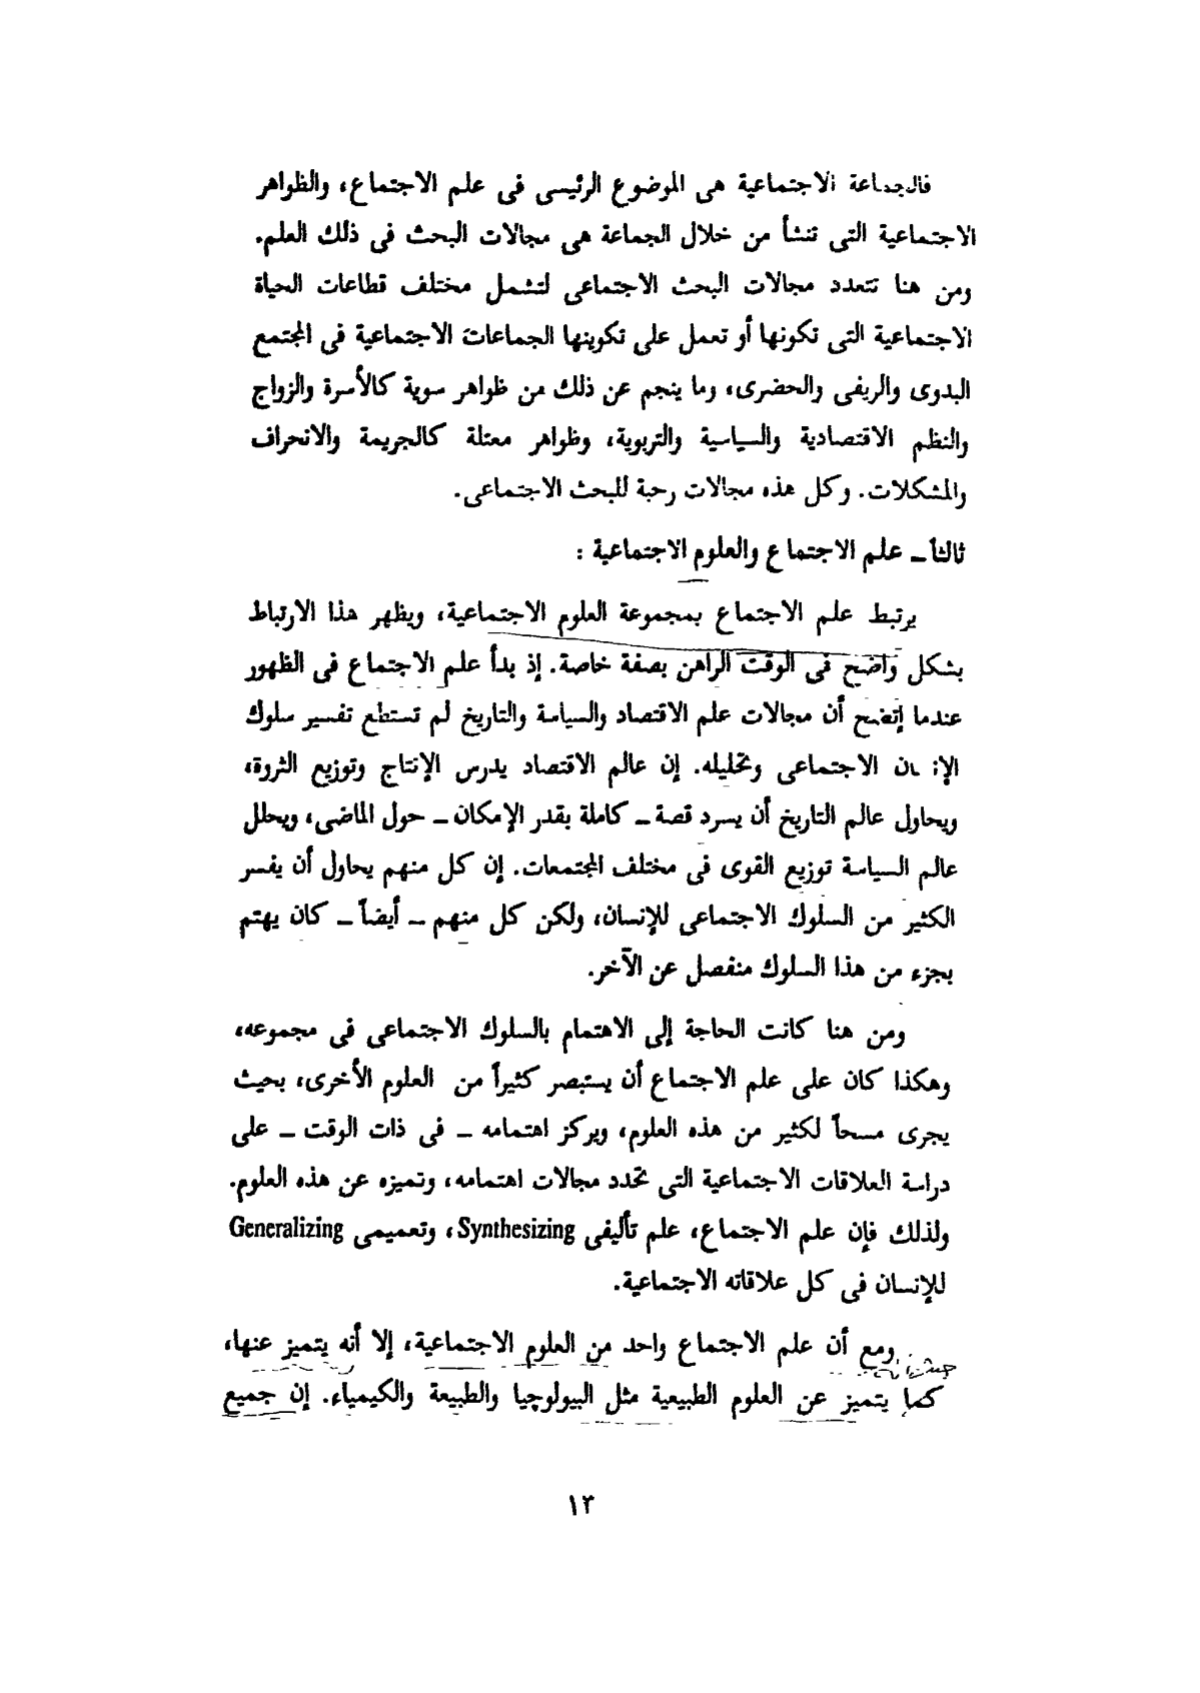 فالجماعة الاجتماعية هى الموضوع الرئيسى فى علم الاجتماع، والظواهر
الاجتماعية التى تنشأ من خلال الجماعة هى مجالات البحث فى ذلك العلم.
ومن هنا تتعدد مجالات البحث الاجتماعى لتشمل مختلف قطاعات الحياة
الاجتماعية التى تكونها أو تعمل على تكوينها الجماعات الاجتماعية فى المجتمع
البدوى والريفى والحضرى، وما ينجم عن ذلك من ظواهر سوية كالأسرة والزواج
والنظم الاقتصادية والسياسية والتربوية، وظواهر معتلة كالجريمة والانحراف
والمشكلات. وكل هذه مجالات رحبة للبحث الاجتماعى.
ثالثاً ـ علم الاجتماع والعلوم الاجتماعية :
يرتبط علم الاجتماع بمجموعة العلوم الاجتماعية، ويظهر هذا الارتباط
بشكل واضح فى الوقت الراهن بصفة خاصة. إذ بدأ علم الاجتماع فى الظهور
عندما إتضح أن مجالات علم الاقتصاد والسياسة والتاريخ لم تستطع تفسير سلوك
الإنسان الاجتماعى وتحليله. إن عالم الاقتصاد يدرس الإنتاج وتوزيع الثروة،
ويحاول عالم التاريخ أن يسرد قصة ـ كاملة بقدر الإمكان ـ حول الماضى، ويحلل
عالم السياسة توزيع القوى فى مختلف المجتمعات. إن كل منهم يحاول أن يفسر
الكثير من السلوك الاجتماعى للإنسان، ولكن كل منهم ـ أيضاً ـ كان يهتم
بجزء من هذا السلوك منفصل عن الآخر.
ومن هنا كانت الحاجة إلى الاهتمام بالسلوك الاجتماعى فى مجموعه،
وهكذا كان على علم الاجتماع أن يستبصر كثيراً من العلوم الأخرى، بحيث
يجرى مسحاً لكثير من هذه العلوم، ويركز اهتمامه ـ فى ذات الوقت ـ على
دراسة العلاقات الاجتماعية التى تحدد مجالات اهتمامه، وتميزه عن هذه العلوم.
ولذلك فإن علم الاجتماع، علم تأليفى Synthesizing، وتعميمى Generalizing
للإنسان فى كل علاقاته الاجتماعية.
ومع أن علم الاجتماع واحد من العلوم الاجتماعية، إلا أنه يتميز عنها،
كما يتميز عن العلوم الطبيعية مثل البيولوچيا والطبيعة والكيمياء. إن جميع
١٣